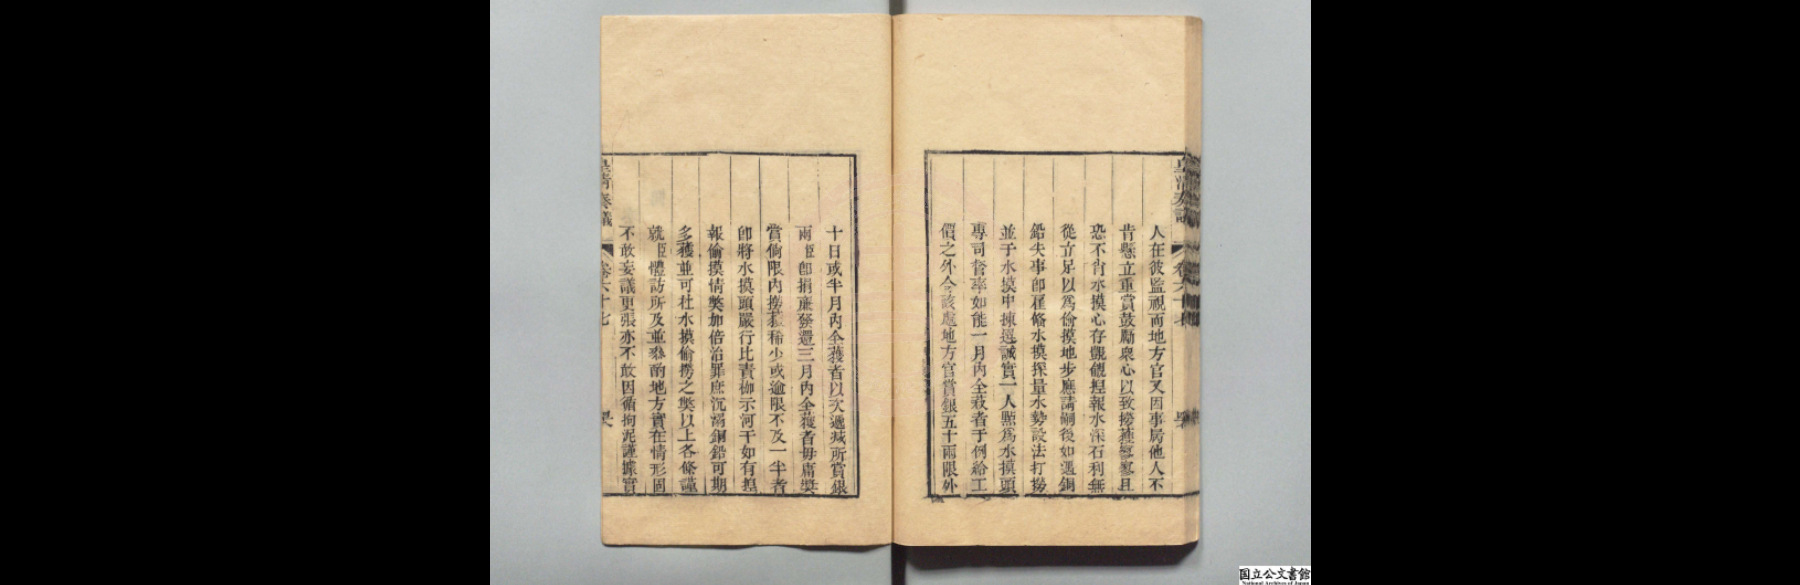 人在彼監視而地方官又因事屬他人不
肯懸立重賞鼓勵衆心以致撈獲寥寥且
恐不肖水摸心存覬覦捏報水深石利無
從立足以爲偷摸地步應請嗣後如遇銅
鉛失事卽雇俻水摸探量水勢設法打撈
並于水摸中揀選誠實一人點爲水摸頭
專司督率如能一月內全获者于例給工
價之外令該處地方官賞銀五十兩限外
十日或半月內全獲者以次遞减所賞銀
兩 卽捐亷發還三月內全獲者毋庸奬
賞倘限內撈獲稀少或逾限不及一半者
卽將水摸頭嚴行比責枷示河干如有捏
報偷摸情獘加倍治罪庶沉溺銅鉛可期
多獲並可杜水摸偷撈之獘以上各條謹
就 體訪所及並叅酌地方實在情形固
不敢妄議更張亦不敢因循拘泥謹據實
皇淸奏議
卷六十七